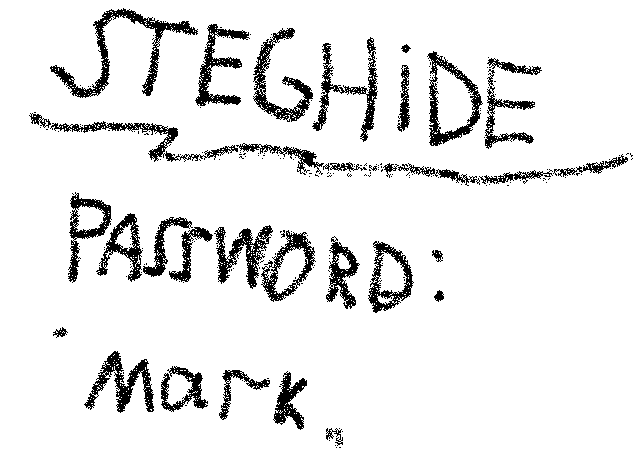 STEGHiDE
PASSWORD:
Mark